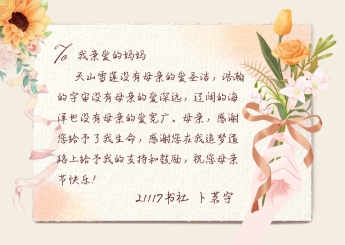 To 我亲爱的妈妈
天山雪莲没有母亲的爱圣洁，浩瀚
的宇宙没有母亲的爱深远，辽阔的海
洋也没有母亲的爱宽广。母亲，感谢
您给予了我生命，感谢您在我追梦道
路上给予我的支持和鼓励，祝您母亲
节快乐！
21117书社 卜茗宇